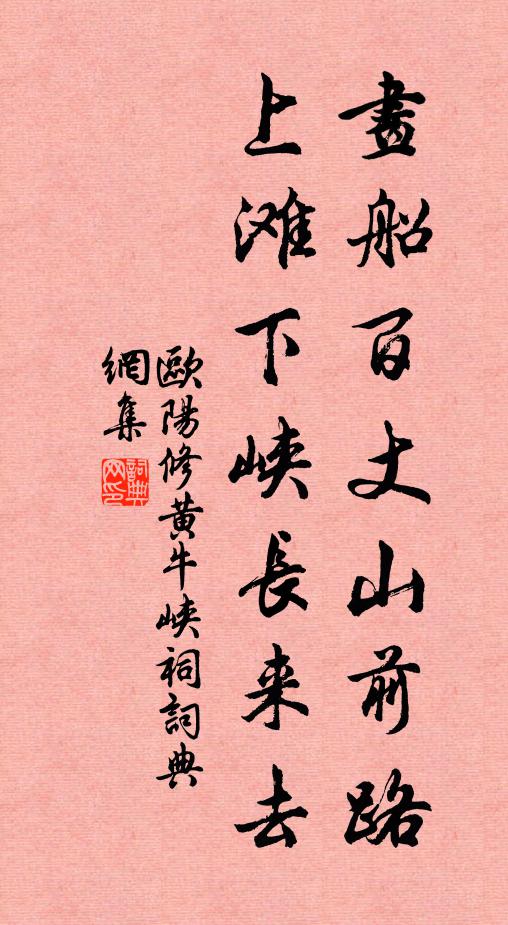 畫船百丈山前路
上滩下峽長来去
歐陽修黄牛峽祠詞典
網集
詞典網印